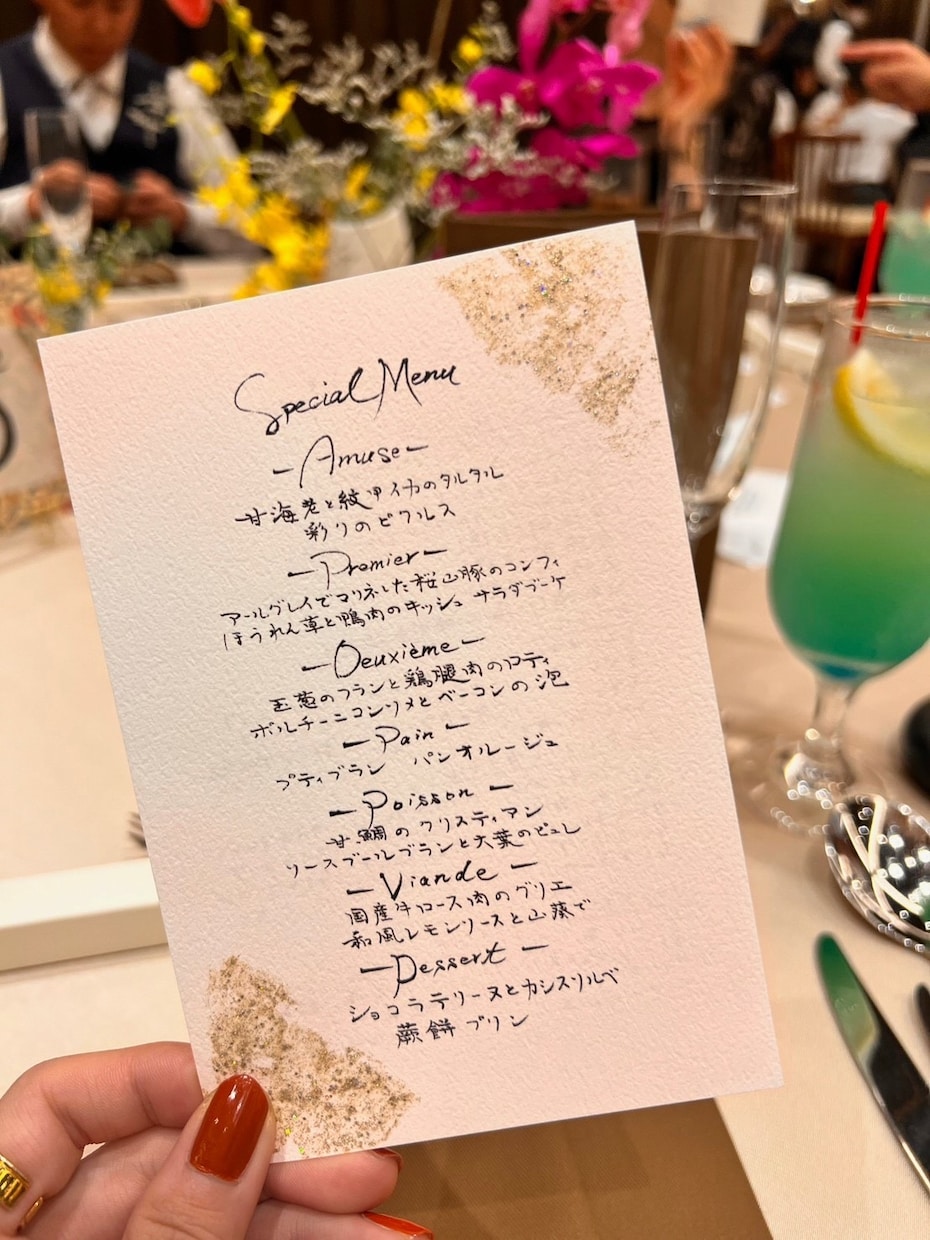 Special Menu
-Amuse-
甘海老と紋甲イカのタルタル
彩りのピクルス
-Premier-
アールグレイでマリネした桜山豚のコンフィ
ほうれん草と鴨肉のキッシュ サラダブーケ
-Deuxième-
玉葱のフランと鶏腿肉のロティ
ポルチーニコンソメとベーコンの泡
-Pain-
プティブラン パンオルージュ
-Poisson-
甘鯛のクリスティアン
ソースブールブランと大葉のピュレ
-Viande-
国産牛ロース肉のグリエ
和風レモンソースと山葵で
-Dessert-
ショコラテリーヌとカシスソルベ
蕨餅プリン